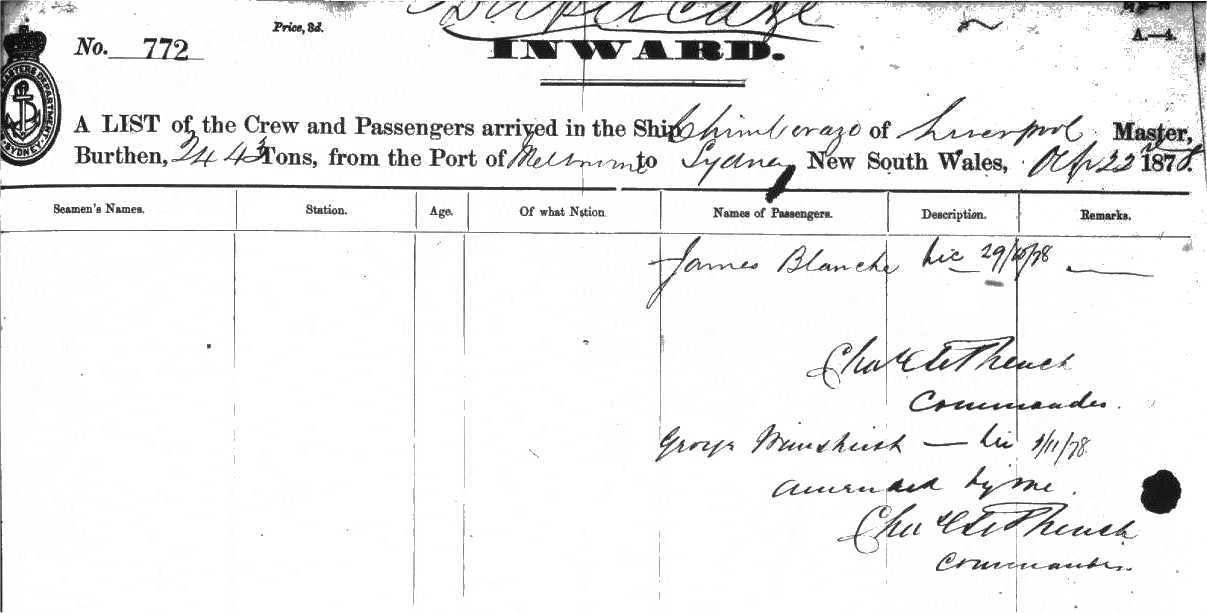 Price, 3d.
No. 772
INWARD.
A.—4.
A LIST of the Crew and Passengers arrived in the Ship Chimborazo of Liverpool Master,
Burthen, 2443 Tons, from the Port of Melbourne to Sydney New South Wales, 22 1878.
Seamen's Names. Station. Age. Of what Nation Names of Passengers. Description. Remarks.
James Blanche lic 29/10/78
Commander.
George lic /11/78
Amended by me.
Commander.